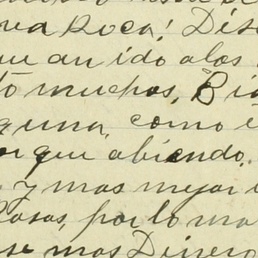 va Roca! Dis
ue an ido a los
to muchos, Bi
guna, como e
orque abiendo.
y mas mejor
Cosas, por lo ma
se mas Dinero